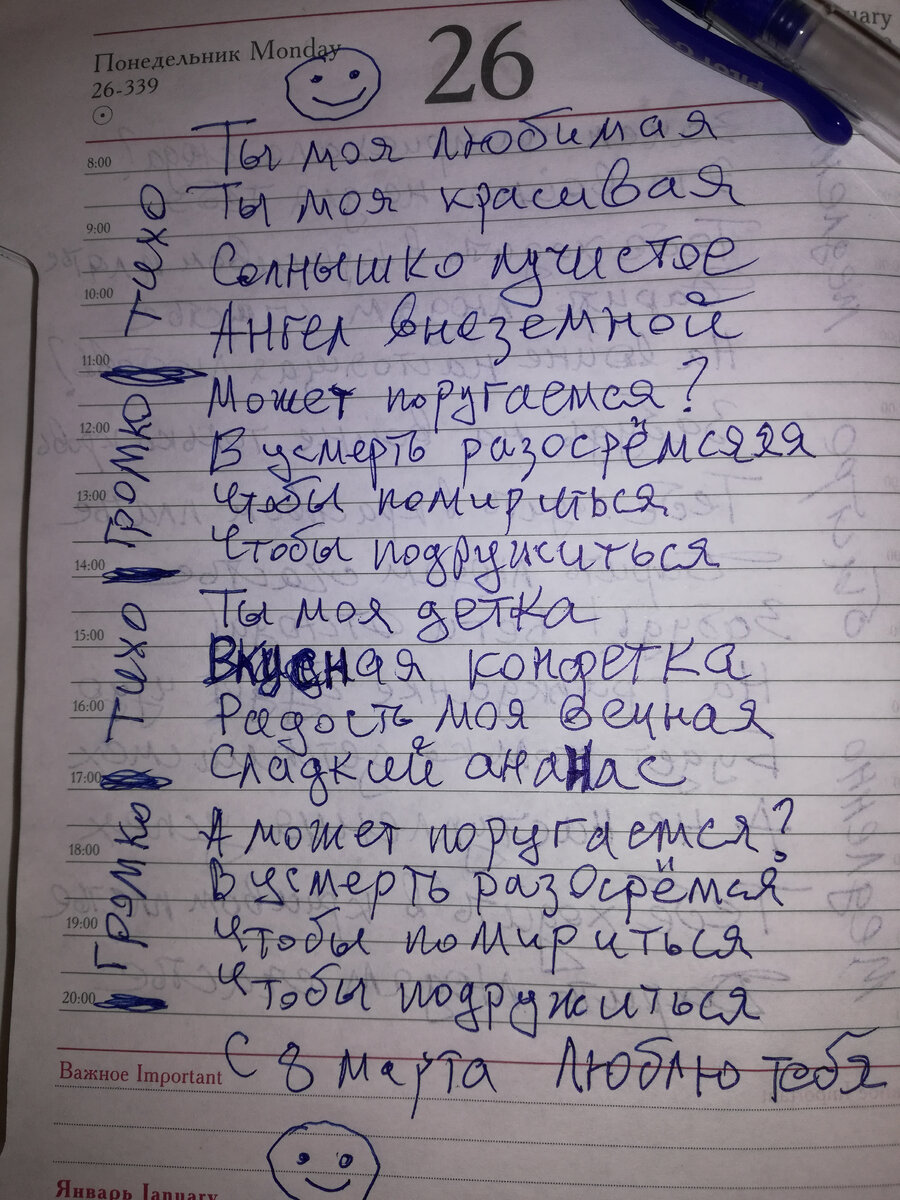 Понедельник Monday
26-339
26
nuary
PILOT
8:00
Ты моя любимая
Ты моя красивая
9:00
Солнышко лучистое
10:00
Ангел внеземной
тихо
11:00
Может поругаемся?
12:00
В усмерть разосрёмсяяя
13:00
Чтобы помириться
Чтобы подружиться
громко
14:00
Ты моя детка
15:00
Вкусная конфетка
16:00
Радость моя вечная
Сладкий ананас
Тихо
17:00
А может поругаемся?
18:00
В усмерть разосрёмся
19:00
Чтобы помириться
Чтобы подружиться
Громко
20:00
С 8 марта Люблю тебя
Важное Important
Январь January